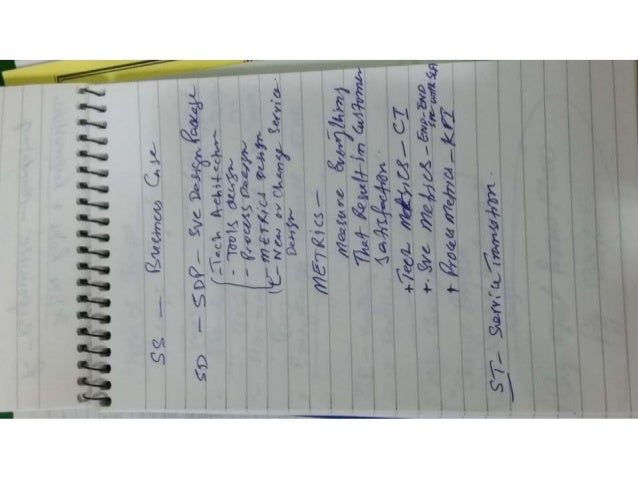 SS — Business Case
SD — SDP — Sve Design Package
- Tech Achitecture
- Tools design
- Process Design
- METRICS design
- New or Change Service
Design
METRICS —
Measure Everything
That Result in Customer
Satisfaction.
+ Tech Metrics - CI
+ Sve Metrics - END-END
Sve with SLA
+ Process Metrics - KPI
ST - Service Transition.